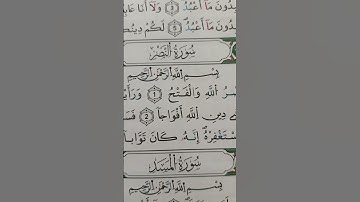 بُدُونَ مَآ أَعْبُدُ ٣ وَلَآ أَنَا۠ عَابِ
بُدُونَ مَآ أَعْبُدُ ٥ لَكُمْ دِينُكُ
سُورَةُ النَّصْرِ
بِسْمِ اللَّهِ الرَّحْمَٰنِ الرَّحِيمِ
صْرُ اللَّهِ وَالْفَتْحُ ١ وَرَأَيْ
فِي دِينِ اللَّهِ أَفْوَاجًا ٢
سْتَغْفِرْهُ إِنَّهُ كَانَ تَوَّابًا
سُورَةُ الْمَسَدِ
بِسْمِ اللَّهِ الرَّحْمَٰنِ الرَّحِيمِ